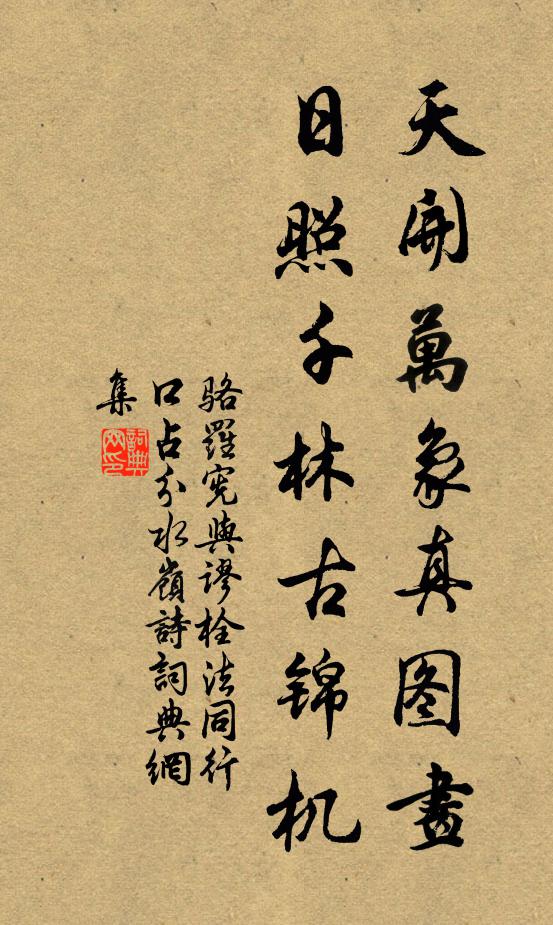 天開萬象真图畫
日照千林古錦机
骆羅宪與謬栓法同行
口占分水嶺詩詞典網
集
詞典
网印